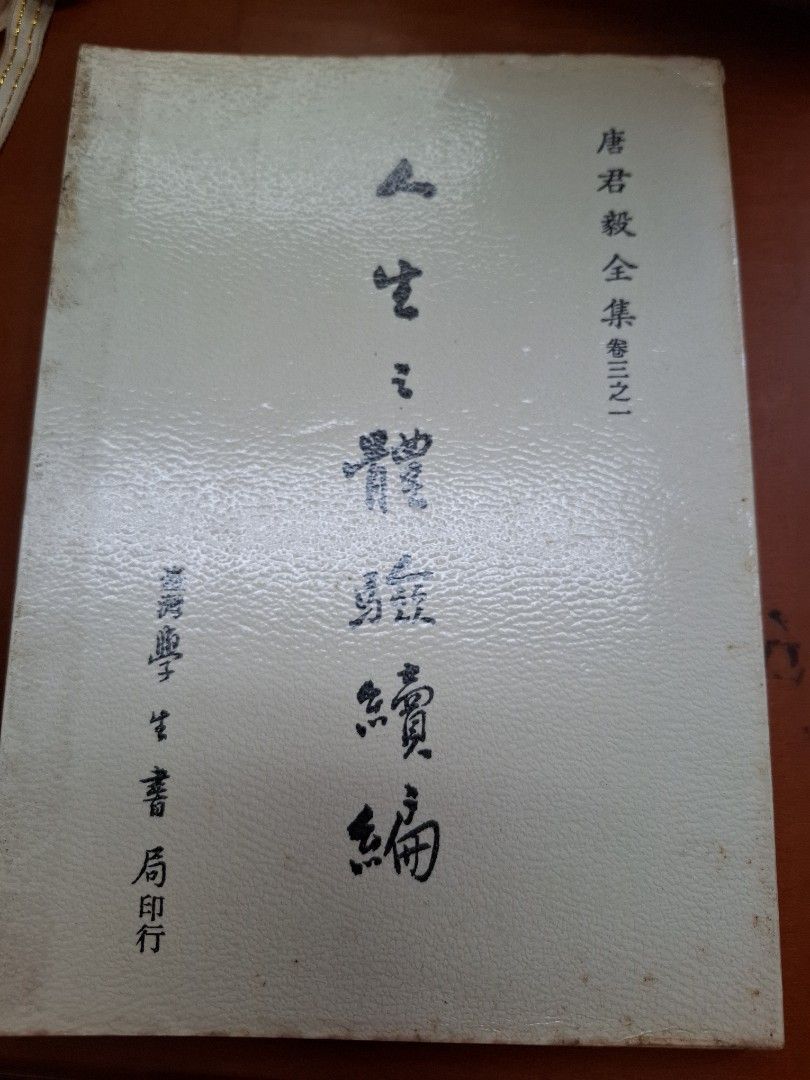 唐君毅全集 卷三之一
人生之體驗續編
臺灣學生書局印行